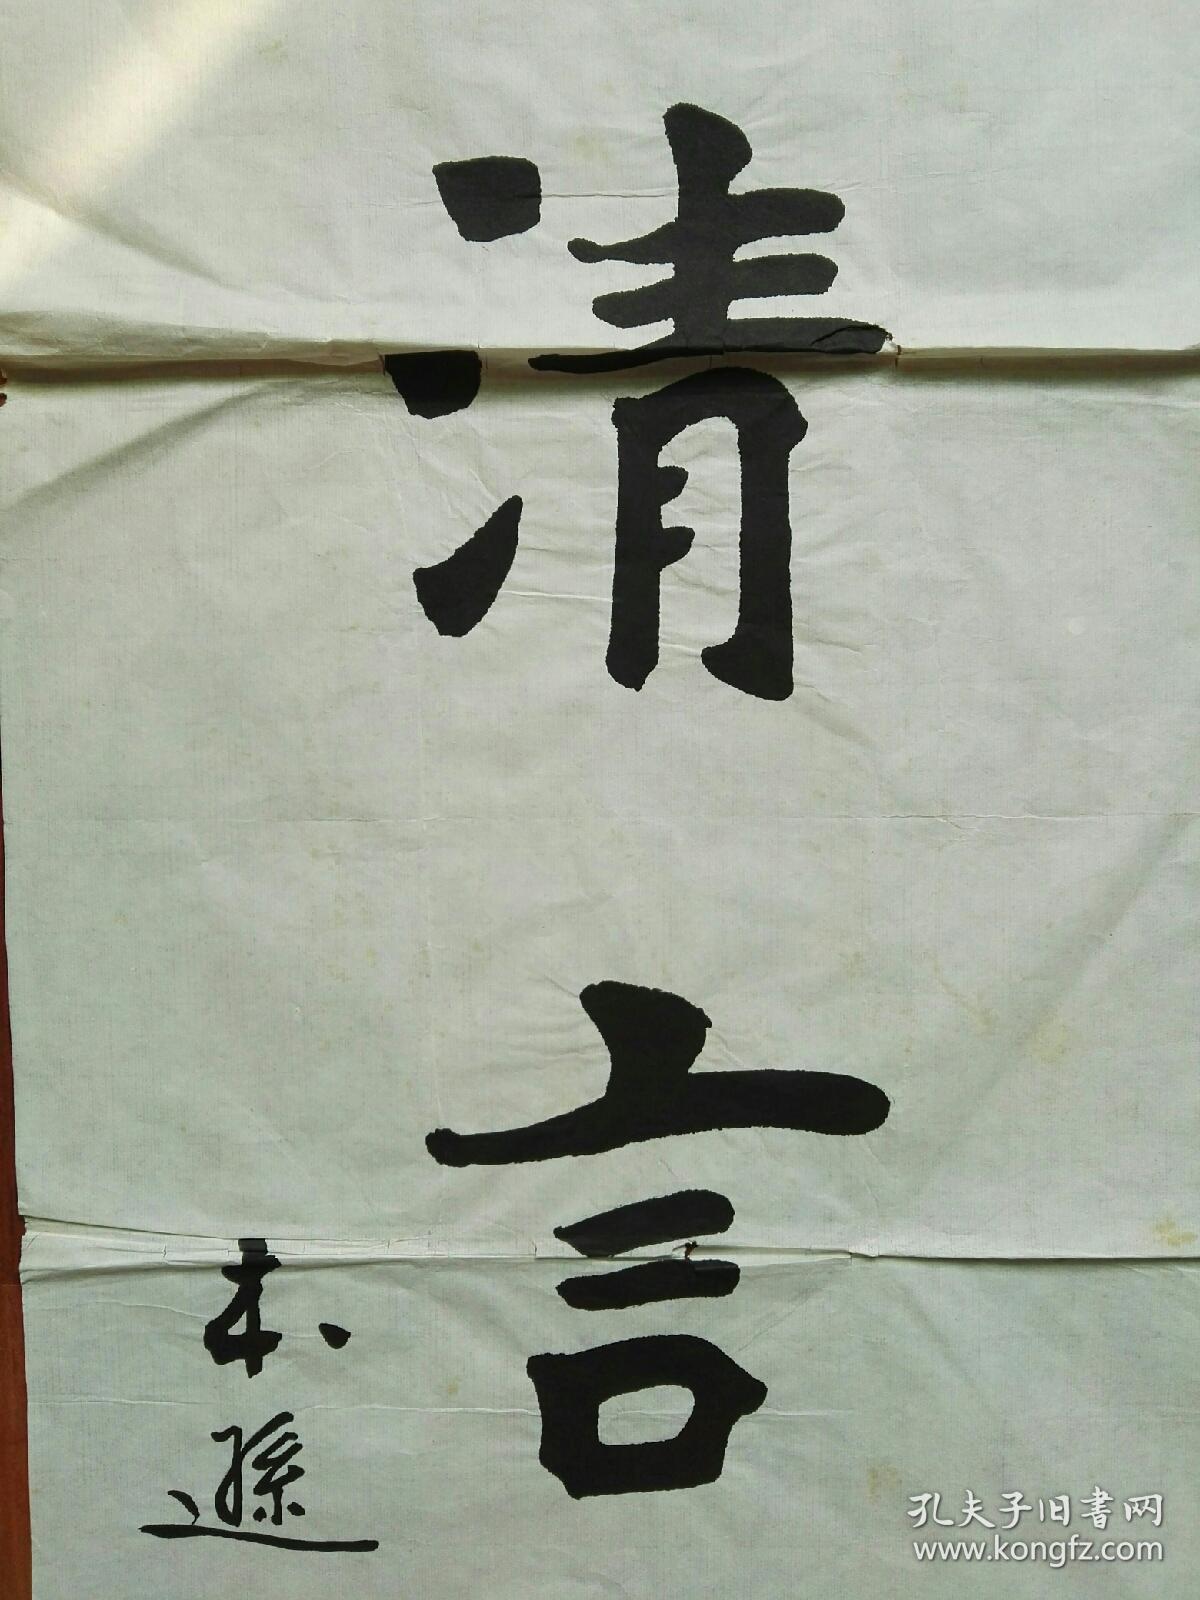 清言
木遜
孔夫子旧書网
www.kongfz.com